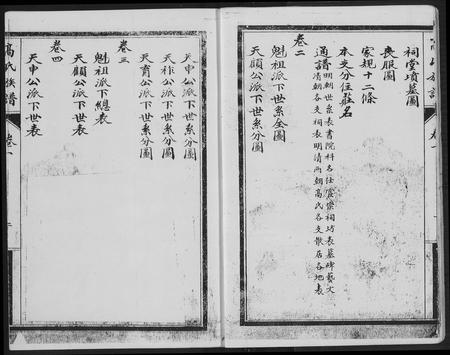 祠堂墳墓圖
喪服圖
家規十二條
本支分住莊名
通譜明朝世系表書院科名仕宦崇祠坊表墓碑藝文
清朝各支祠表明清兩朝高氏各支散居各地表
卷二
魁祖派下世系全圖
天顧公派下世系分圖
天申公派下世系分圖
天祚公派下世系分圖
天育公派下世系分圖
卷三
魁祖派下總表
天顧公派下世表
卷四
天申公派下世表
高氏族譜
卷一